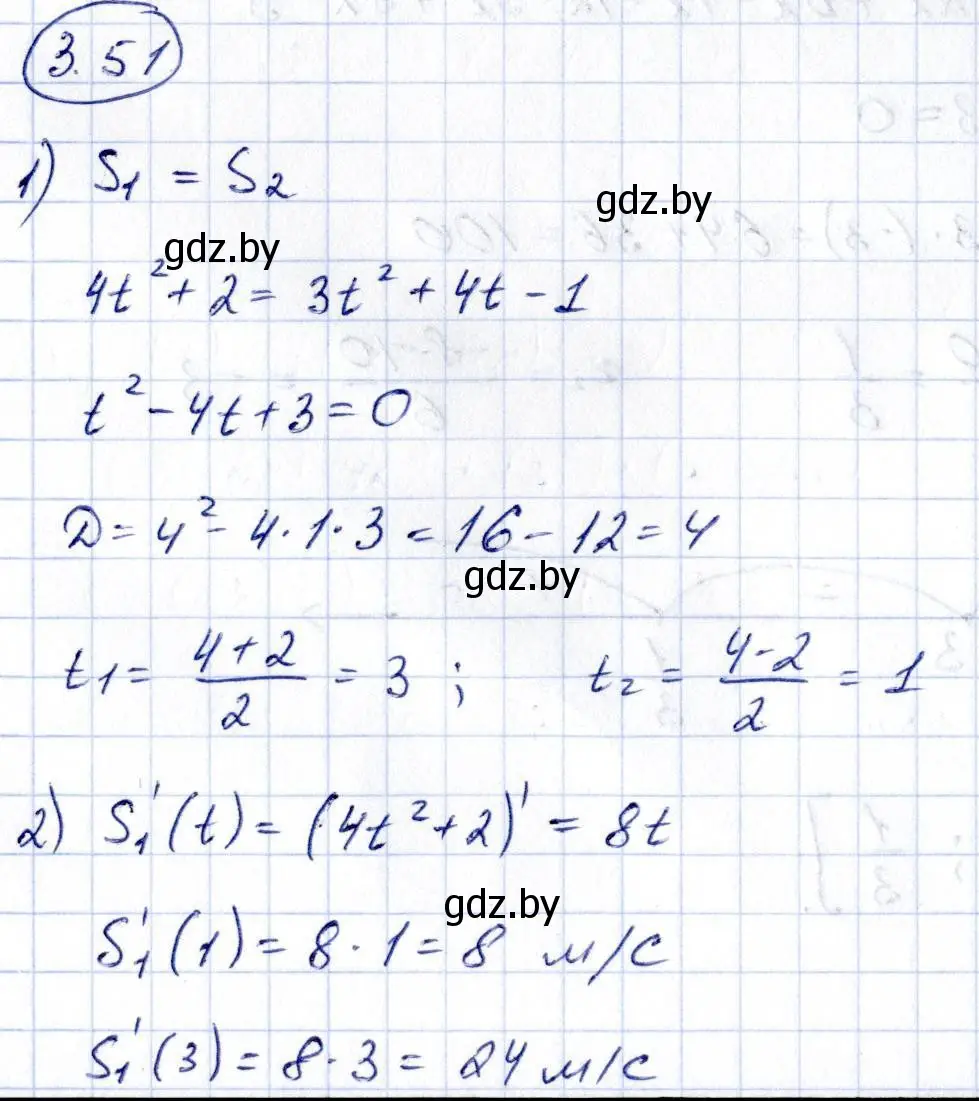 3.51
1) S₁ = S₂
gdz.by
gdz.by
4t² + 2 = 3t² + 4t - 1
t² - 4t + 3 = 0
D = 4² - 4·1·3 = 16 - 12 = 4
gdz.by
t₁ = (4+2)/2 = 3 ; t₂ = (4-2)/2 = 1
2) S₁'(t) = (4t² + 2)' = 8t
gdz.by
S₁'(1) = 8·1 = 8 м/с
S₁'(3) = 8·3 = 24 м/с